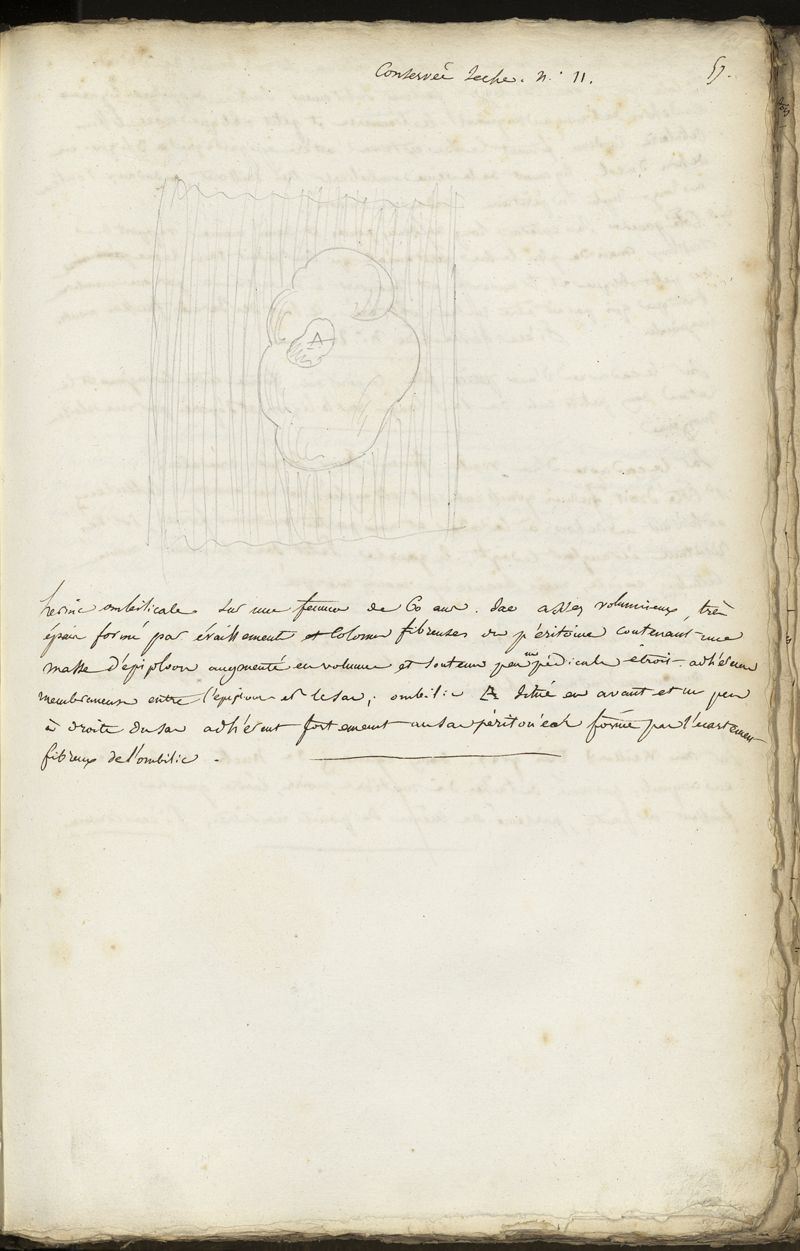 Conservée seche. n.° 11.
57.
A
hernie ombilicale. Sur une femme de 60 ans. Sac assez volumineux, très
épais formé par éraillement et Colonnes fibreuses du péritoine contenant une
masse d'épiploon augmenté en volume et soutenu par un pédicule étroit. adhérence
membraneuse entre l'épiploon et le sac; ombilic A situé en avant et un peu
à droite du sac adhérent fortement au sac péritonéal formé par l'écartement
fibreux de l'ombilic.